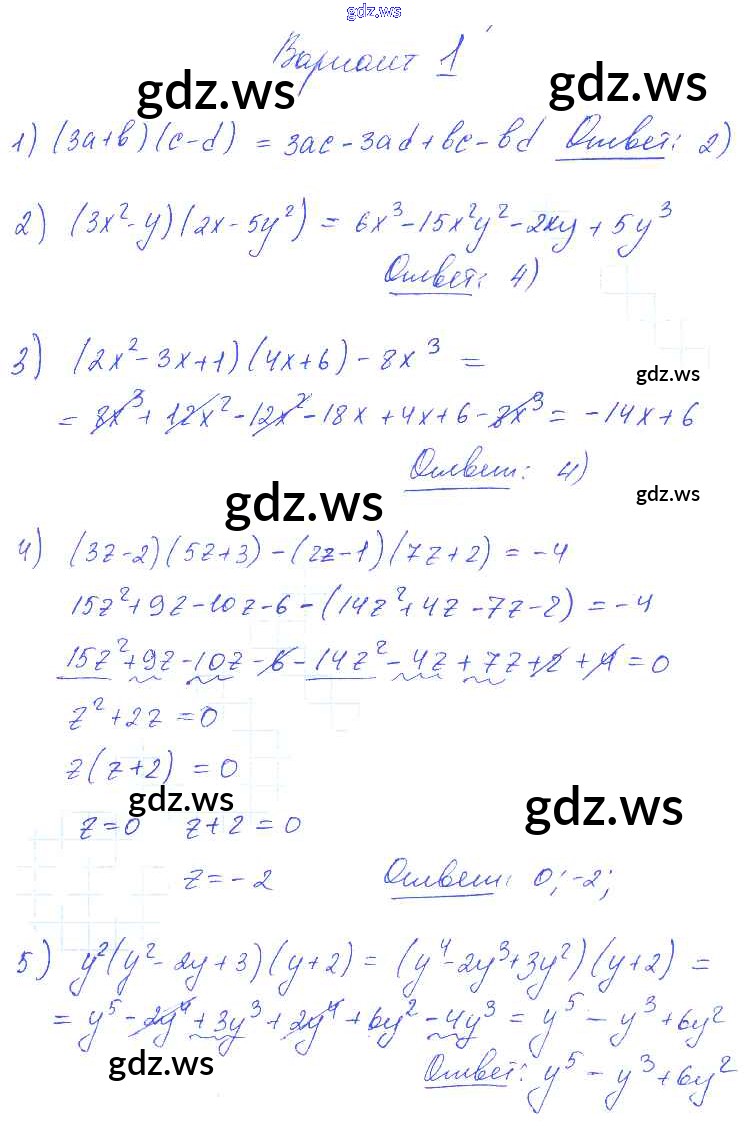 gdz.ws
Вариант 1
gdz.ws gdz.ws
1) (3a+b)(c-d) = 3ac-3ad+bc-bd Ответ: 2)
2) (3x²-y)(2x-5y²) = 6x³-15x²y²-2xy+5y³
Ответ: 4)
3) (2x²-3x+1)(4x+6)-8x³ =
gdz.ws
= 8x³+12x²-12x²-18x+4x+6-8x³ = -14x+6
Ответ: 4)
gdz.ws gdz.ws
4) (3z-2)(5z+3)-(2z-1)(7z+2) = -4
15z²+9z-10z-6-(14z²+4z-7z-2) = -4
15z²+9z-10z-6-14z²-4z+7z+2+4=0
z²+2z=0
z(z+2)=0
gdz.ws gdz.ws
z=0 z+2=0
z=-2 Ответ: 0;-2;
5) y²(y²-2y+3)(y+2) = (y⁴-2y³+3y²)(y+2) =
= y⁵-2y⁴+3y³+2y⁴+6y²-4y³ = y⁵-y³+6y²
gdz.ws
Ответ: y⁵-y³+6y²